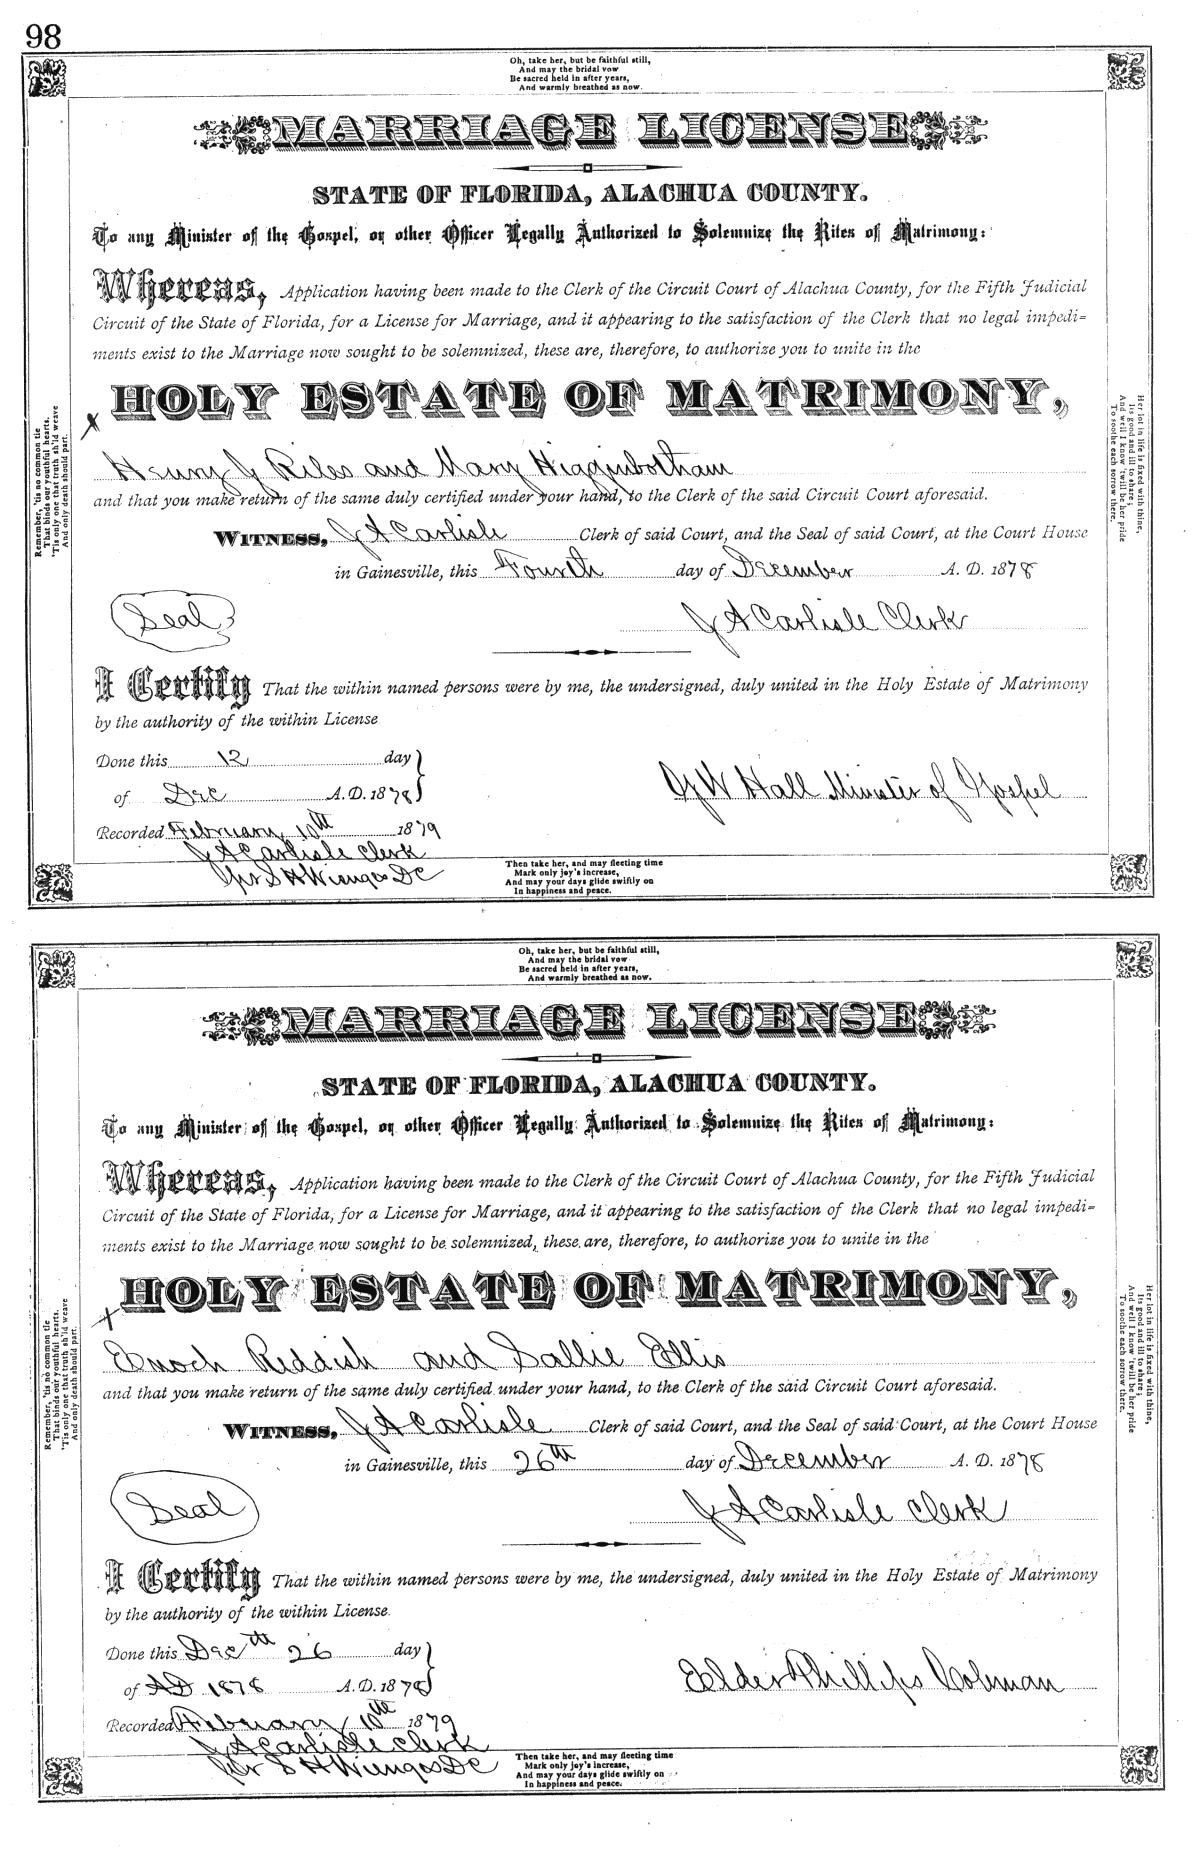 98
Oh, take her, but be faithful still,
And may the bridal vow
Be sacred held in after years,
And warmly breathed as now.
MARRIAGE LICENSE
STATE OF FLORIDA, ALACHUA COUNTY.
To any Minister of the Gospel, or other Officer Legally Authorized to Solemnize the Rites of Matrimony:
Whereas, Application having been made to the Clerk of the Circuit Court of Alachua County, for the Fifth Judicial
Circuit of the State of Florida, for a License for Marriage, and it appearing to the satisfaction of the Clerk that no legal impedi=
ments exist to the Marriage now sought to be solemnized, these are, therefore, to authorize you to unite in the
HOLY ESTATE OF MATRIMONY,
Remember, 'tis no common tie
That binds our youthful hearts.
'Tis only one that truth sh'ld weave
And only death should part.
Her lot in life is fixed with thine,
Its good and ill to share;
And well I know 'twill be her pride
To soothe each sorrow there.
x Henry J Riles and Mary Higginbotham
and that you make return of the same duly certified under your hand, to the Clerk of the said Circuit Court aforesaid.
WITNESS, J A Carlisle Clerk of said Court, and the Seal of said Court, at the Court House
in Gainesville, this Fourth day of December A. D. 1878
Seal
J A Carlisle Clerk
I Certify That the within named persons were by me, the undersigned, duly united in the Holy Estate of Matrimony
by the authority of the within License
Done this 12 day
of Dec A.D. 1878
G W Hall Minister of Gospel
Recorded February 10th 1879
J A Carlisle Clerk
per S H Wienges DC
Then take her, and may fleeting time
Mark only joy's increase,
And may your days glide swiftly on
In happiness and peace.
Oh, take her, but be faithful still,
And may the bridal vow
Be sacred held in after years,
And warmly breathed as now.
MARRIAGE LICENSE
STATE OF FLORIDA, ALACHUA COUNTY.
To any Minister of the Gospel, or other Officer Legally Authorized to Solemnize the Rites of Matrimony:
Whereas, Application having been made to the Clerk of the Circuit Court of Alachua County, for the Fifth Judicial
Circuit of the State of Florida, for a License for Marriage, and it appearing to the satisfaction of the Clerk that no legal impedi=
ments exist to the Marriage now sought to be solemnized, these are, therefore, to authorize you to unite in the
HOLY ESTATE OF MATRIMONY,
Remember, 'tis no common tie
That binds our youthful hearts.
'Tis only one that truth sh'ld weave
And only death should part.
Her lot in life is fixed with thine,
Its good and ill to share;
And well I know 'twill be her pride
To soothe each sorrow there.
x Enoch Reddish and Sallie Ellis
and that you make return of the same duly certified under your hand, to the Clerk of the said Circuit Court aforesaid.
WITNESS, J A Carlisle Clerk of said Court, and the Seal of said Court, at the Court House
in Gainesville, this 26th day of December A. D. 1878
Seal
J A Carlisle Clerk
I Certify That the within named persons were by me, the undersigned, duly united in the Holy Estate of Matrimony
by the authority of the within License.
Done this Dec th 26 day
of AD 1878 A.D. 1878
Elder Phillips Colman
Recorded February 10th 1879
J A Carlisle Clerk
per S H Wienges DC
Then take her, and may fleeting time
Mark only joy's increase,
And may your days glide swiftly on
In happiness and peace.